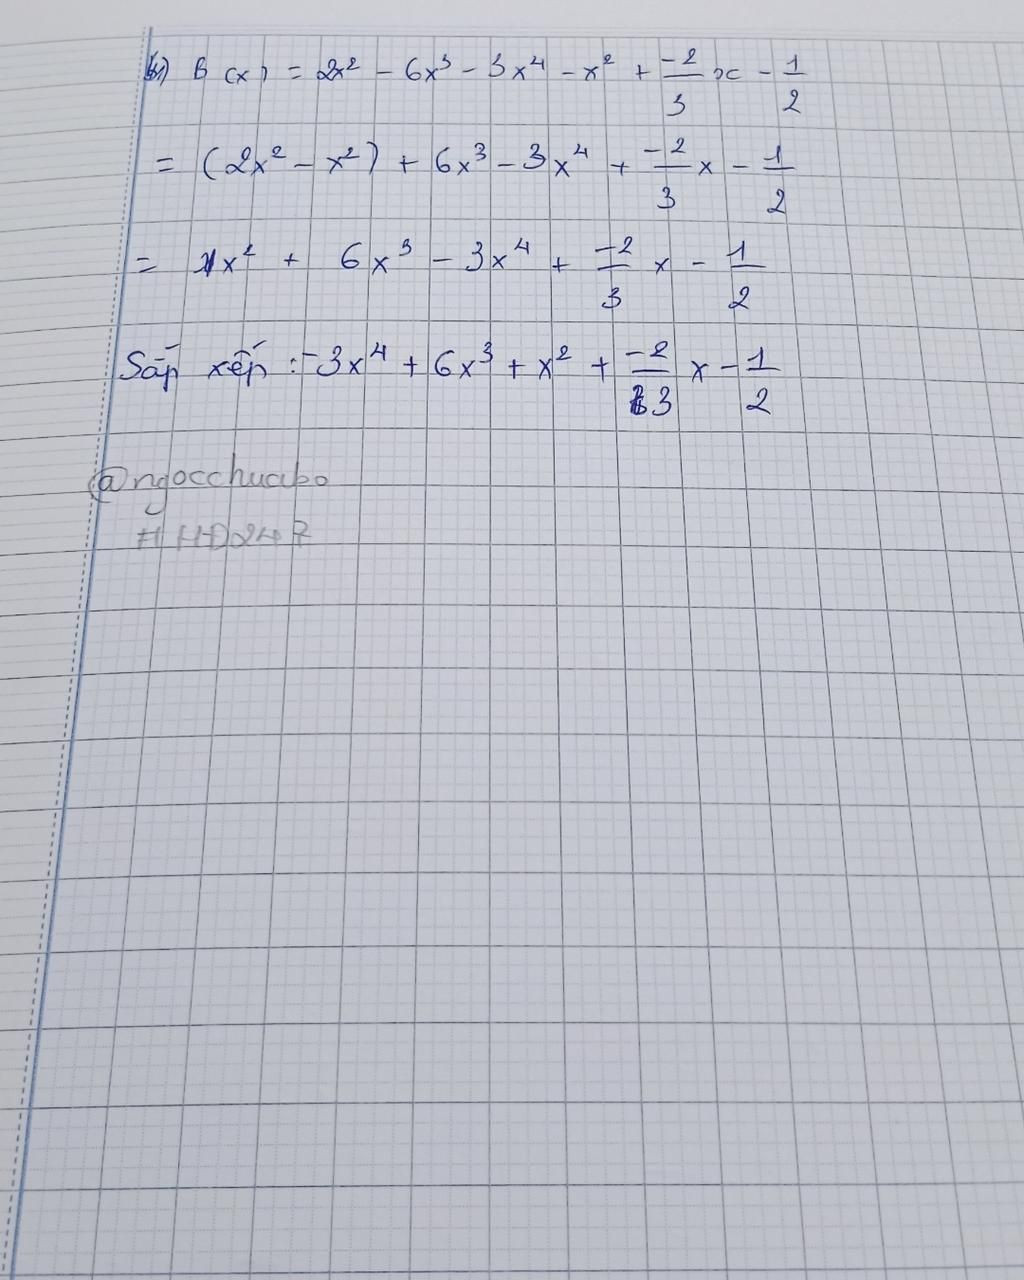 b) B(x) = 2x² - 6x³ - 3x⁴ - x² + -2/3 x - 1/2
= (2x² - x²) + 6x³ - 3x⁴ + -2/3 x - 1/2
= 1x² + 6x³ - 3x⁴ + -2/3 x - 1/2
Sắp xếp : -3x⁴ + 6x³ + x² + -2/3 x - 1/2
@ngocchuabo
# HD247